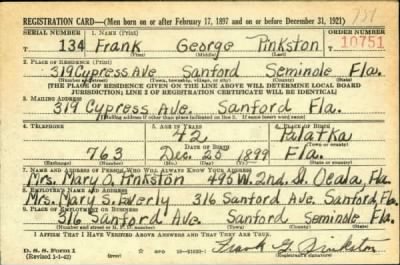 REGISTRATION CARD—(Men born on or after February 17, 1897 and on or before December 31, 1921)
SERIAL NUMBER 1. NAME (Print) ORDER NUMBER
T 134 Frank George Pinkston 10751
(First) (Middle) (Last)
2. PLACE OF RESIDENCE (Print)
319 Cypress Ave Sanford Seminole Fla.
(Number and street) (Town, township, village, or city) (County) (State)
[THE PLACE OF RESIDENCE GIVEN ON THE LINE ABOVE WILL DETERMINE LOCAL BOARD
JURISDICTION; LINE 2 OF REGISTRATION CERTIFICATE WILL BE IDENTICAL]
3. MAILING ADDRESS
319 Cypress Ave. Sanford Fla.
[Mailing address if other than place indicated on line 2. If same insert word same]
4. TELEPHONE 5. AGE IN YEARS 6. PLACE OF BIRTH
42 Palatka
DATE OF BIRTH (Town or county)
763 Dec. 25 1899 Fla.
(Exchange) (Number) (Mo.) (Day) (Yr.) (State or country)
7. NAME AND ADDRESS OF PERSON WHO WILL ALWAYS KNOW YOUR ADDRESS
Mrs. Mary J. Pinkston 495 W. 2nd. St. Ocala, Fla.
8. EMPLOYER'S NAME AND ADDRESS
Mrs. Mary S. Everly 316 Sanford Ave. Sanford, Fla.
9. PLACE OF EMPLOYMENT OR BUSINESS
316 Sanford Ave. Sanford Seminole Fla.
(Number and street or R. F. D. number) (Town) (County) (State)
I AFFIRM THAT I HAVE VERIFIED ABOVE ANSWERS AND THAT THEY ARE TRUE.
D. S. S. Form 1 GPO
(Revised 1-1-42) Frank G. Pinkston
(Registrant's signature)